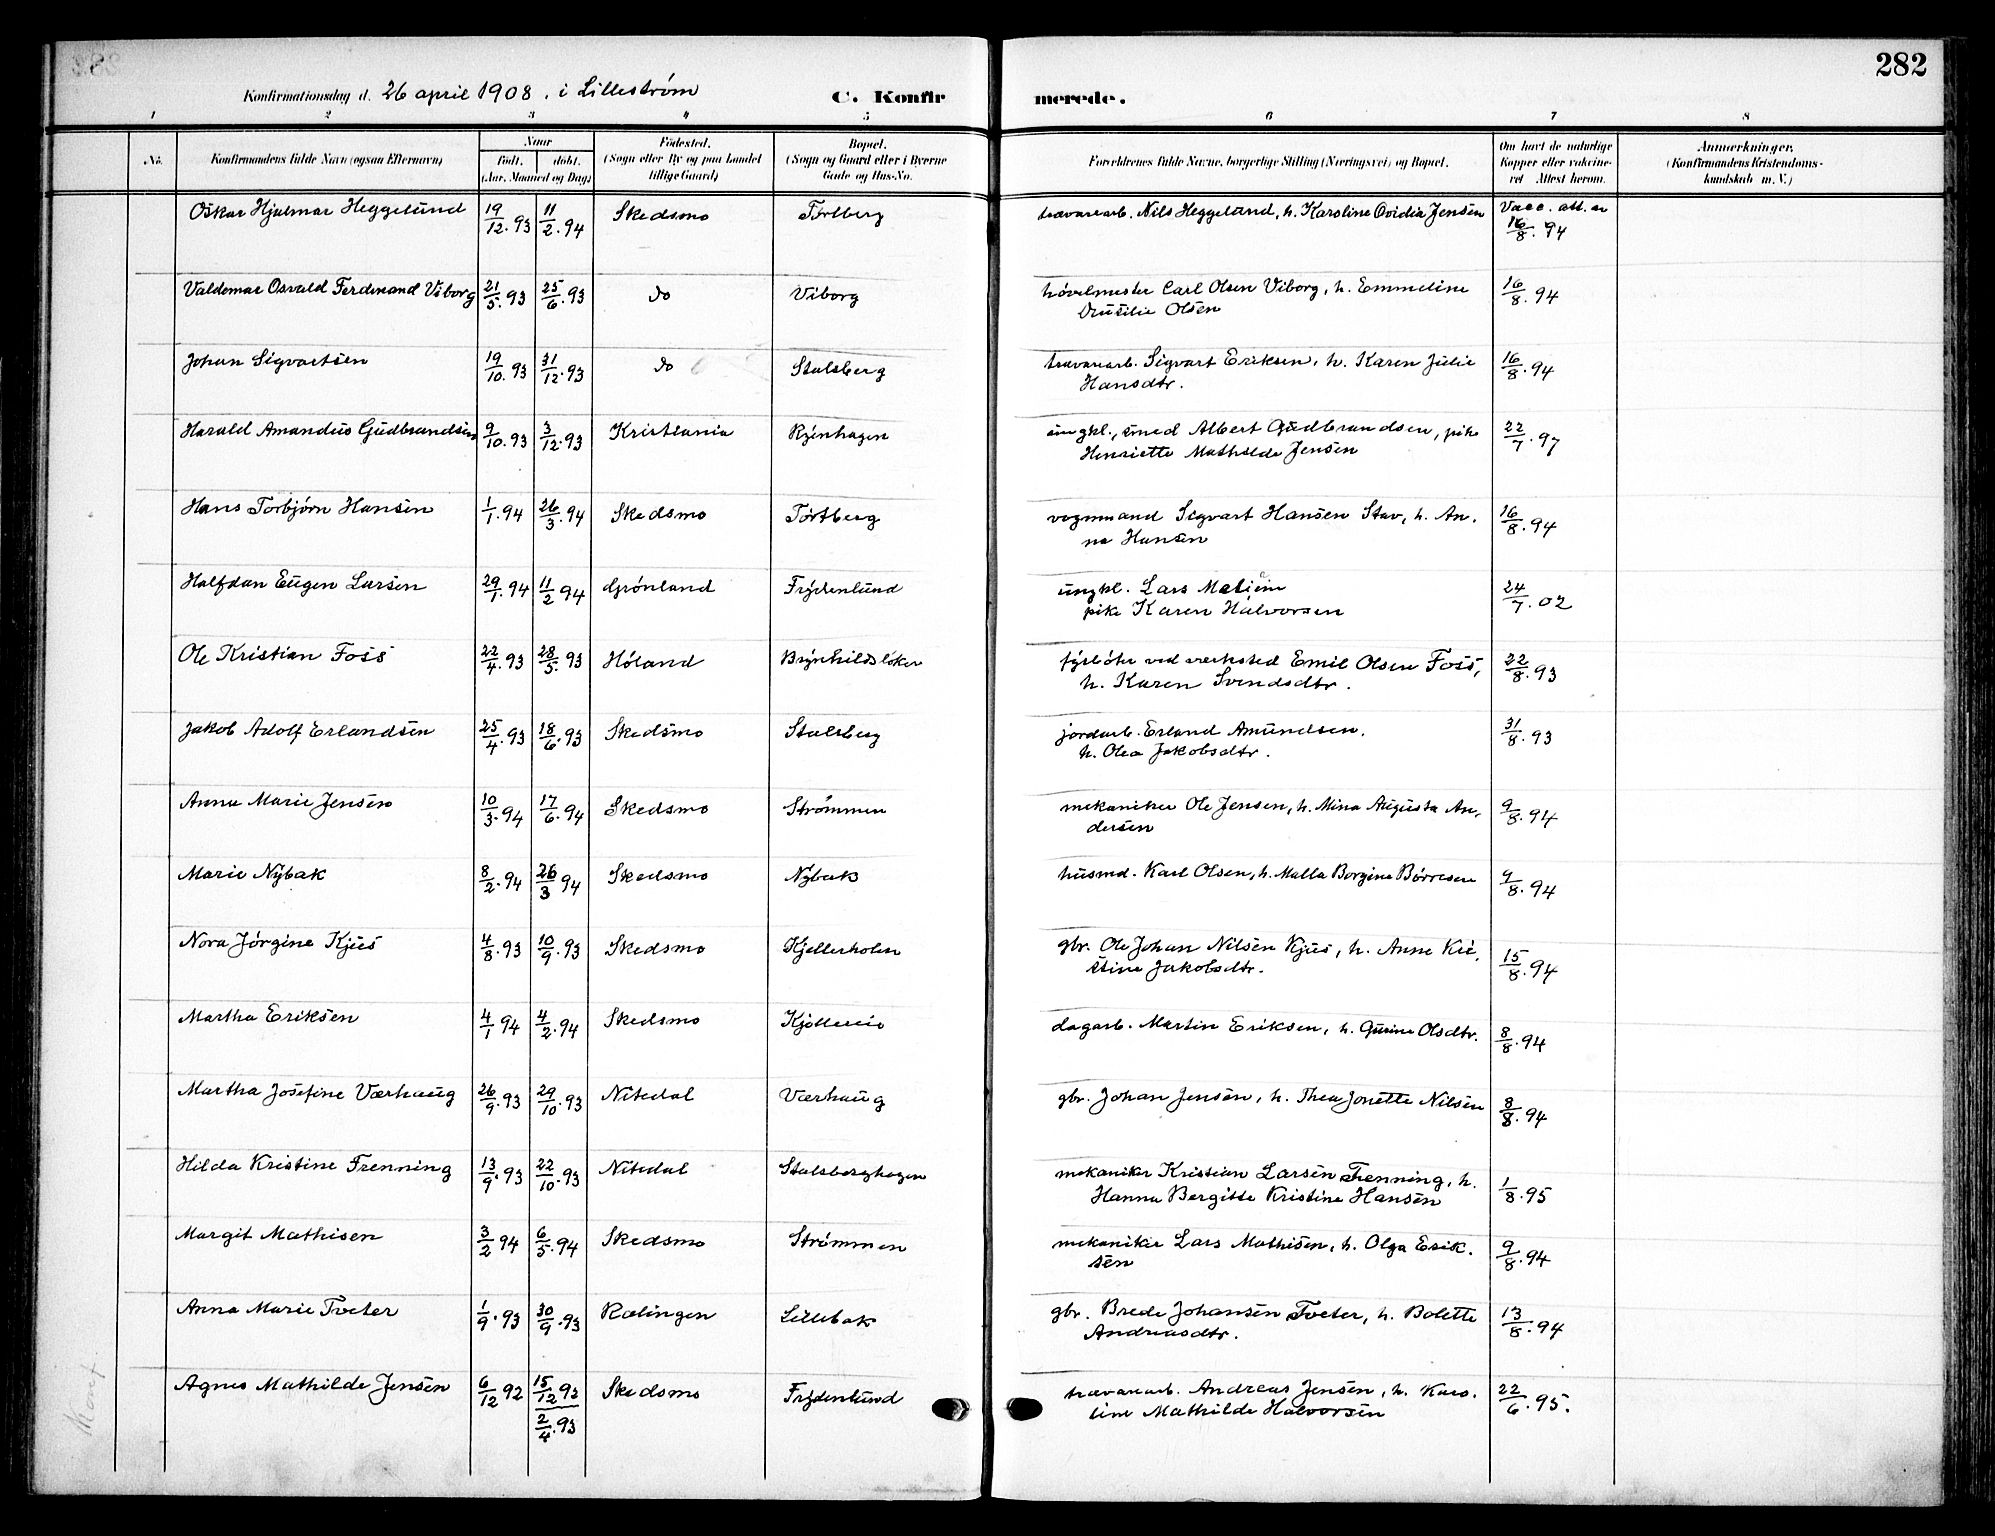 282
Konfirmationsdag d. 26 april 1908. i Lillestrøm
C. Konfir merede.
1 2 3 4 5 6 7 8
No. Konfirmandens fulde Navn (ogsaa Efternavn) Naar født. døbt. (Aar, Maaned og Dag) Fødested. (Sogn eller By og paa Landet tillige Gaard) Bopæl. (Sogn og Gaard eller i Byerne Gade og Hus-No. Forældrenes fulde Navne, borgerlige Stilling (Næringsvei) og Bopæl. Om havt de naturlige Kopper eller vakcineret Attest herom. Anmærkninger. (Konfirmandens Kristendomskundskab m. V.)
Oskar Hjalmar Heggelund 19/12.93 11/2.94 Skedsmo Tørtberg trævarearb. Nils Heggelund, h. Karoline Ovidia Jensen Vacc. att. av 16/8.94
Valdemar Osvald Ferdinand Viborg 21/5.93 25/6.93 do Viborg høvelmester Carl Olsen Viborg, h. Emmeline
Olsen 16/8.94
Johan Sigvartsen 19/10.93 31/12.93 do Stalsberg trævarearb. Sigvart Eriksen, h. Karen Julie
Hansdtr. 16/8.94
Harald Amandus Gudbrandsen 9/10.93 3/12.93 Kristiania Ryenhagen ungkl., smed Albert Gudbrandsen, pike
Henriette Mathilde Jensen 22/7.97
Hans Torbjørn Hansen 1/1.94 26/3.94 Skedsmo Tørtberg vognmand Sigvart Hansen Stav, h. An-
na Hansen 16/8.94
Halfdan Eugen Larsen 29/1.94 11/2 94 Grønland Frydenlund ungkl. Lars
pike Karen Halvorsen 24/7.02
Ole Kristian Foss 22/4.93 28/5.93 Høland Brynhildsløken fyrbøter ved verksted Emil Olsen Foss,
h. Karen Svendsdtr. 22/8.93
Jakob Adolf Erlandsen 25/4.93 18/6.93 Skedsmo Stalsberg jordarb. Erland Amundsen.
h. Olea Jakobsdtr. 31/8.93
Anna Marie Jensen 10/3.94 17/6.94 Skedsmo Strømmen mekaniker Ole Jensen, h. Mina Augusta An-
dersen 9/8.94
Marie Nybak 8/2.94 26/3 94 Skedsmo Nybak husmd. Karl Olsen, h. Malla Borgine Børresen 9/8.94
Nora Jørgine Kjus 4/8.93 10/9.93 Skedsmo Kjellerholen gbr. Ole Johan Nilsen Kjus, h. Anne Kri-
stine Jakobsdtr. 15/8.94
Martha Eriksen 4/1 94 4/2.94 Skedsmo dagarb. Martin Eriksen, h. Gurine Olsdtr. 8/8.94
Martha Josefine Værhaug 26/9.93 29/10.93 Nitedal Værhaug gbr. Johan Jensen, h. Thea Jonette Nilsen 8/8.94
Hilda Kristine Frenning 13/9.93 22/10.93 Nitedal Stalsberghagen mekaniker Kristian Larsen Frenning, h.
Hanna Bergitte Kristine Hansen 1/8.95
Margit Mathisen 3/2 94 6/5.94 Skedsmo Strømmen mekaniker Lars Mathisen, h. Olga Erik-
sen 9/8.94
Anna Marie Tveter 1/9.93 30/9.93 Rælingen Lillebak gbr. Brede Johansen Tveter, h. Bolette
Andreasdtr. 13/8.94
Agnes Mathilde Jensen 6/12 92 15/12 92 2/4.93 Skedsmo Frydenlund trævarearb. Andreas Jensen, h. Karo-
line Mathilde Halvorsen 22/6.95.